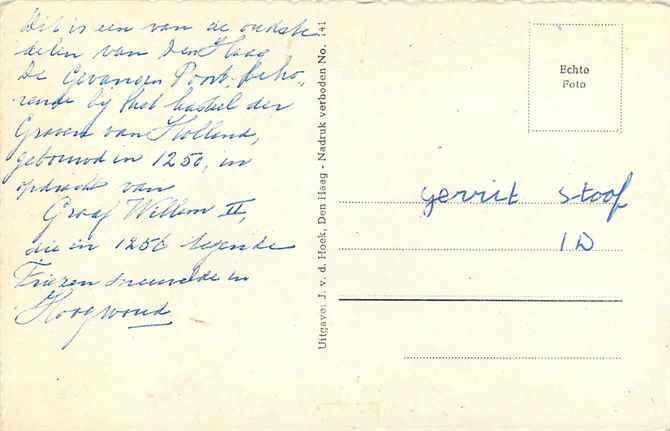 Dit is een van de oudste
delen van Den Haag
De Gevangen Poort, beho-
rende bij het kasteel der
Graven van Holland,
gebouwd in 1250, in
opdracht van
Graaf Willem II,
die in 1256 tegen de
Friezen sneuvelde in
Hoogwoud
Uitgave: J. v. d. Hoek, Den Haag - Nadruk verboden No. 141
Echte
Foto
gerrit Stoof
1D